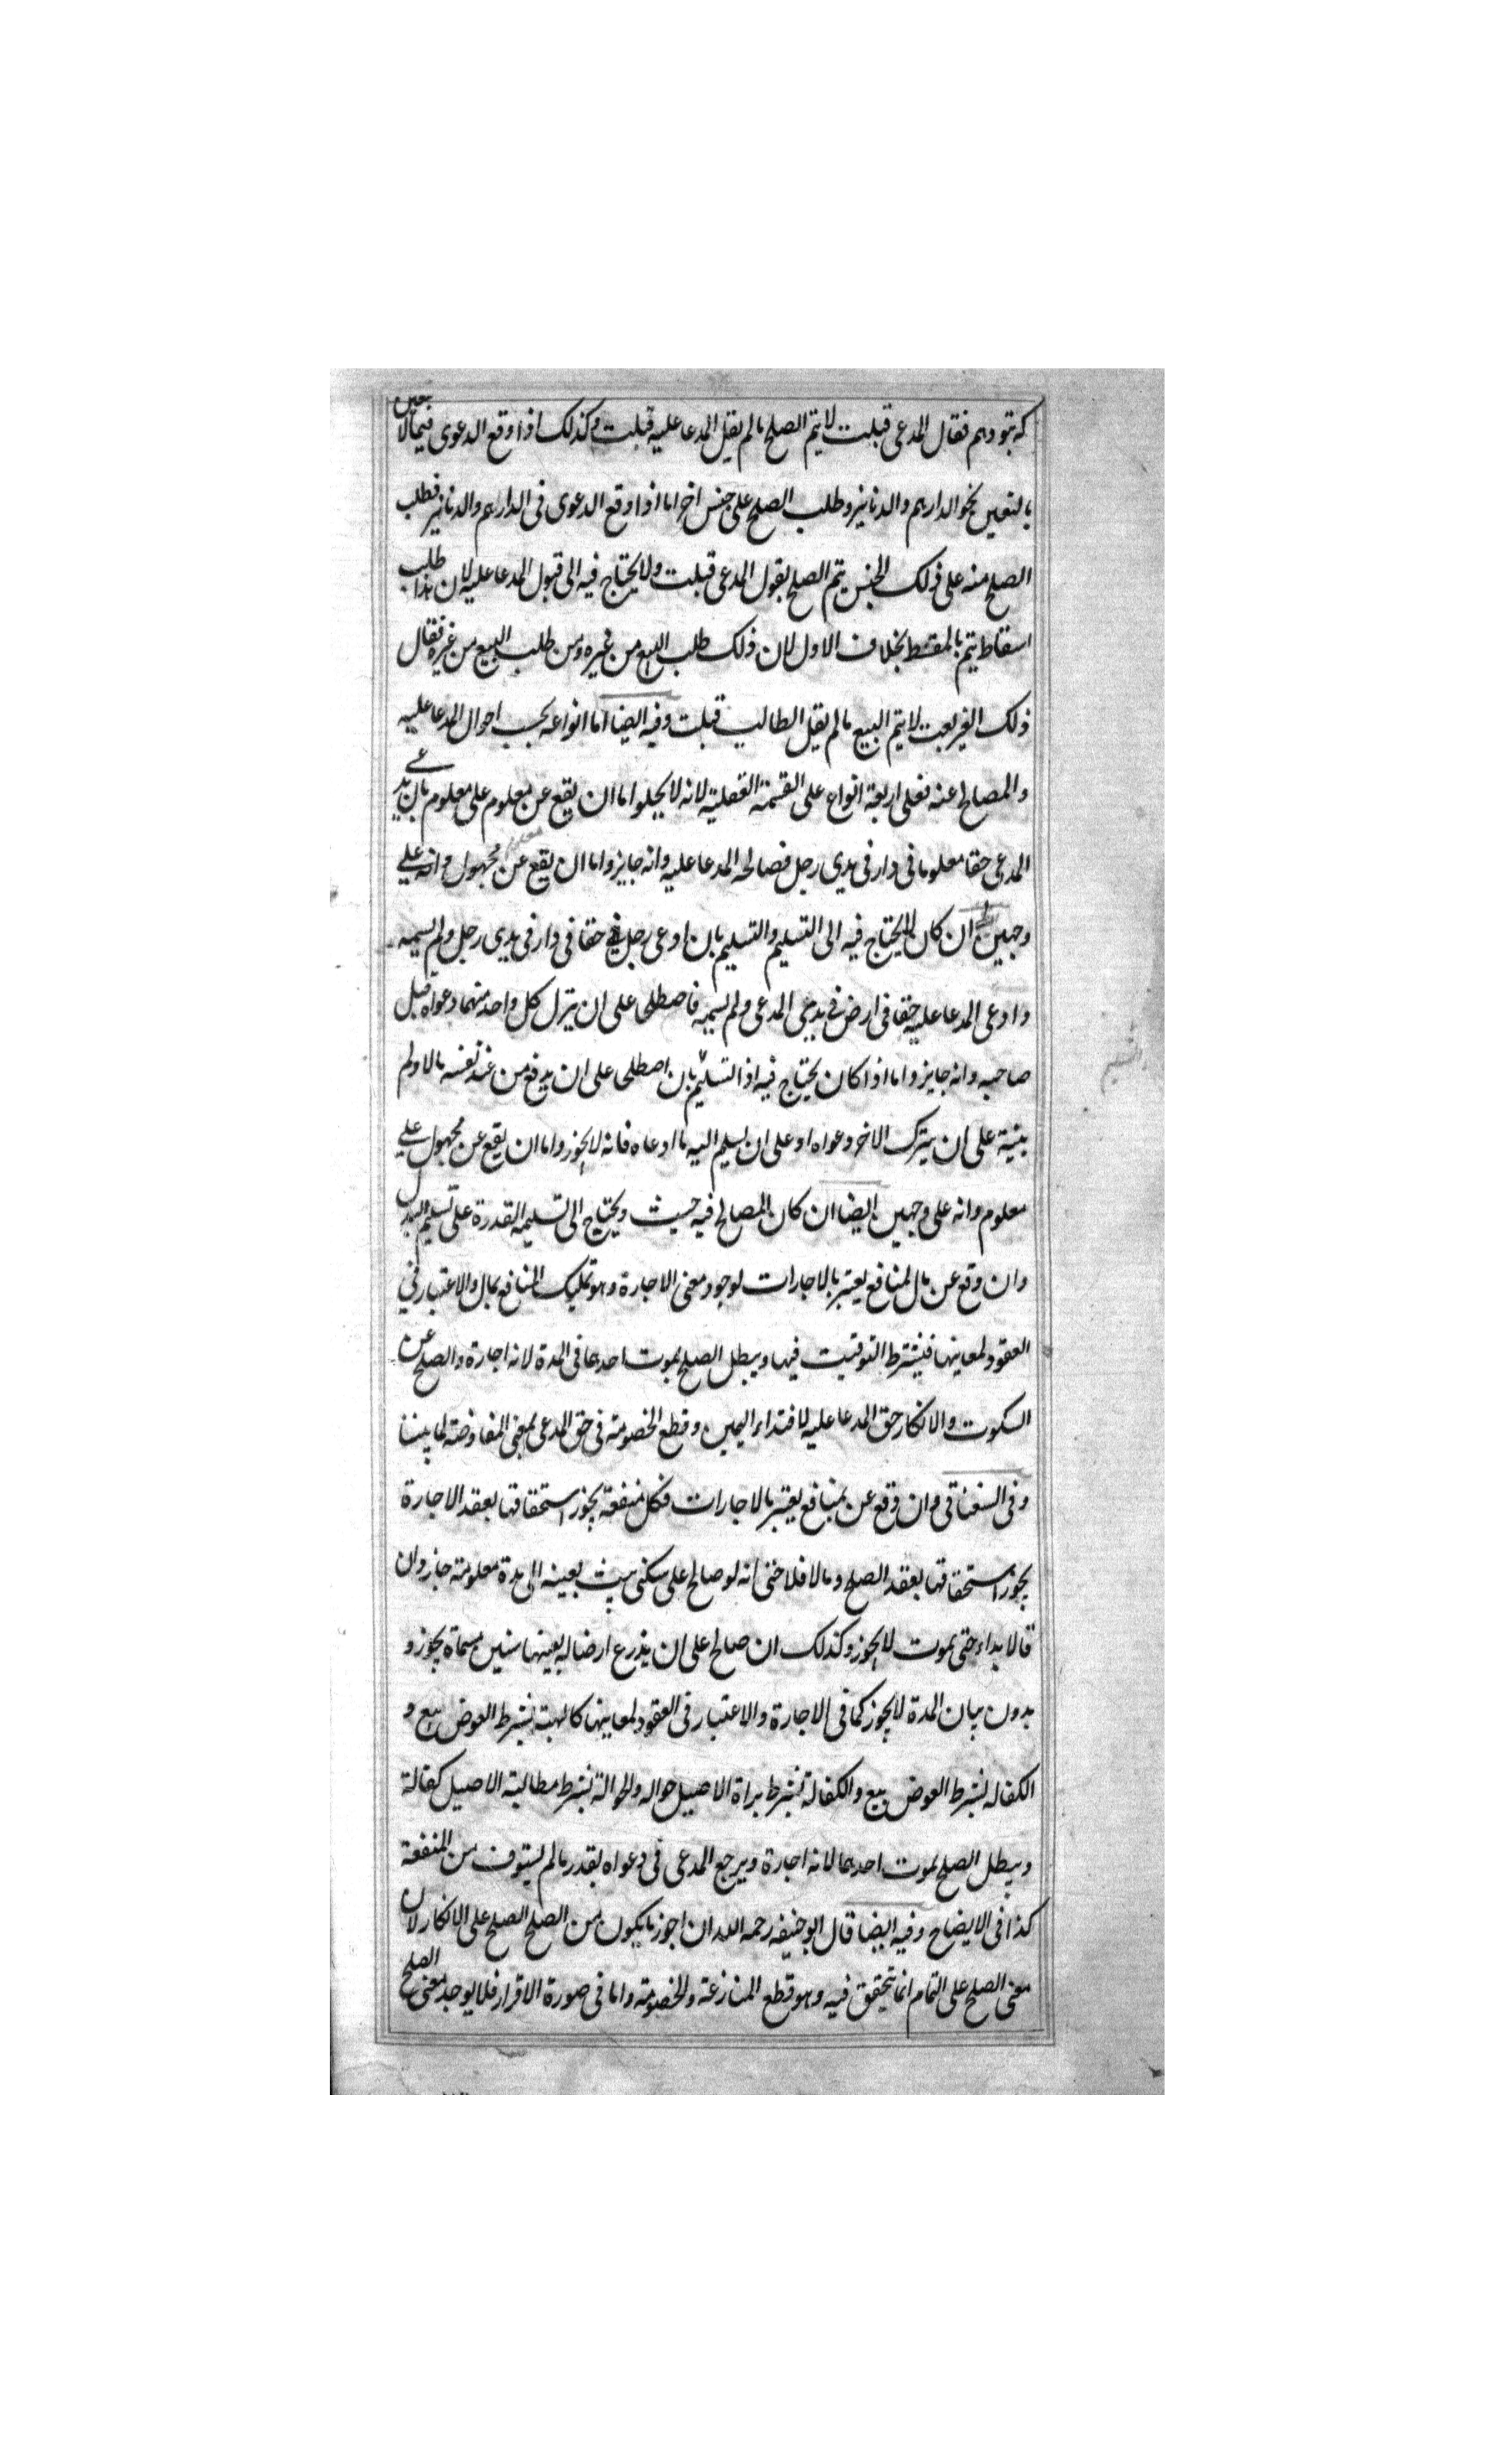 که بتو دهم فقال المدعى قبلت لا يتم الصلح مالم يقل المدعا عليه قبلت وكذلك اذا وقع الدعوى فيما لا يعين
بالتعين نحو الدارهم والدنانير وطلب الصلح على جنس اخر اما اذا وقع الدعوى فى الدارهم والدنانير فطلب
الصلح منه على ذلك الجنس يتم الصلح بقول المدعى قبلت ولا يحتاج فيه الى قبول المدعا عليه لان هذا طلب
اسقاط يتم بالمقسط بخلاف الاول لان ذلك طلب البيع من غيره ومن طلب البيع من غيره فقال
ذلك الغير بعت لا يتم البيع مالم يقل الطالب قبلت وفيه ايضا اما انواعه بحسب احوال المدعا عليه
والمصالح عنه فعلى اربعة انواع على القسمة العقلية لانه لا يخلوا اما ان يقع عن معلوم على معلوم بان يدعى
المدعى حقا معلوما فى دار فى يدى رجل فصالحه المدعا عليه وانه جايز واما ان يقع عن مجهول وانه على
وجهين ان كان لا يحتاج فيه الى التسليم والتسليم بان ادعى رجل حقا فى دار فى يدى رجل ولم يسميه
وادعى المدعا عليه حقا فى ارض فى يدى المدعى ولم يسميه فاصطلحا على ان يترك كل واحد منهما دعواه قبل
صاحبه وانه جايز واما اذا كان يحتاج فيه اذ التسليم بان اصطلحا على ان يدفع من عند نفسه مالا ولم
يبينه على ان يترك الاخر دعواه او على ان يسلم اليه ما ادعاه فانه لا يجوز واما ان يقع عن مجهول على
معلوم وانه على وجهين ايضا ان كان المصالح فيه حيث ويحتاج الى تسليمه القدرة على تسليم البدل
وان وقع عن مال لمنافع يعتبر بالاجارات لوجود معنى الاجارة وهو تمليك المنافع بمال والاعتبار فى
العقود لمعاينها فيشترط التوقيت فيها ويبطل الصلح بموت احدهما فى المدة لانه اجارة والصلح عن
السكوت والانكار حق المدعا عليه لافتداء اليمين وقطع الخصومة فى حق المدعى بمعنى المفاوضة لما بينا
وفى السغناقى وان وقع عن بمنافع يعتبر بالاجارات فكل منفعة يجوز استحقاقها بعقد الاجارة
يجوز استحقاقها بعقد الصلح ومالا فلا حتى انه لو صالح على سكنى بيت بعينه الى مدة معلومة جاز وان
قالا بداء حتى يموت لا يجوز وكذلك ان صالح على ان يذرع ارضا له بعينها سنين مسماة يجوز و
بدون بيان المدة لا يجوز كما فى الاجارة والاعتبار فى العقود لمعاينها كالهبة بشرط العوض بيع و
الكفاله بشرط العوض بيع والكفالة بشرط براة الاصيل حواله والحوالة بشرط مطالبة الاصيل كفالة
ويبطل الصلح بموت احدهما لانه اجارة ويرجع المدعى فى دعواه بقدر مالم يستوف من المنفعة
كذا فى الايضاح وفيه ايضا قال ابو حنيفه رحمه الله ان اجوز ما يكون من الصلح الصلح على الانكار لان
معنى الصلح على التمام انما تتحقق فيه وهو قطع المنازعة والخصومة واما فى صورة الاقرار فلا يوجد معنى الصلح